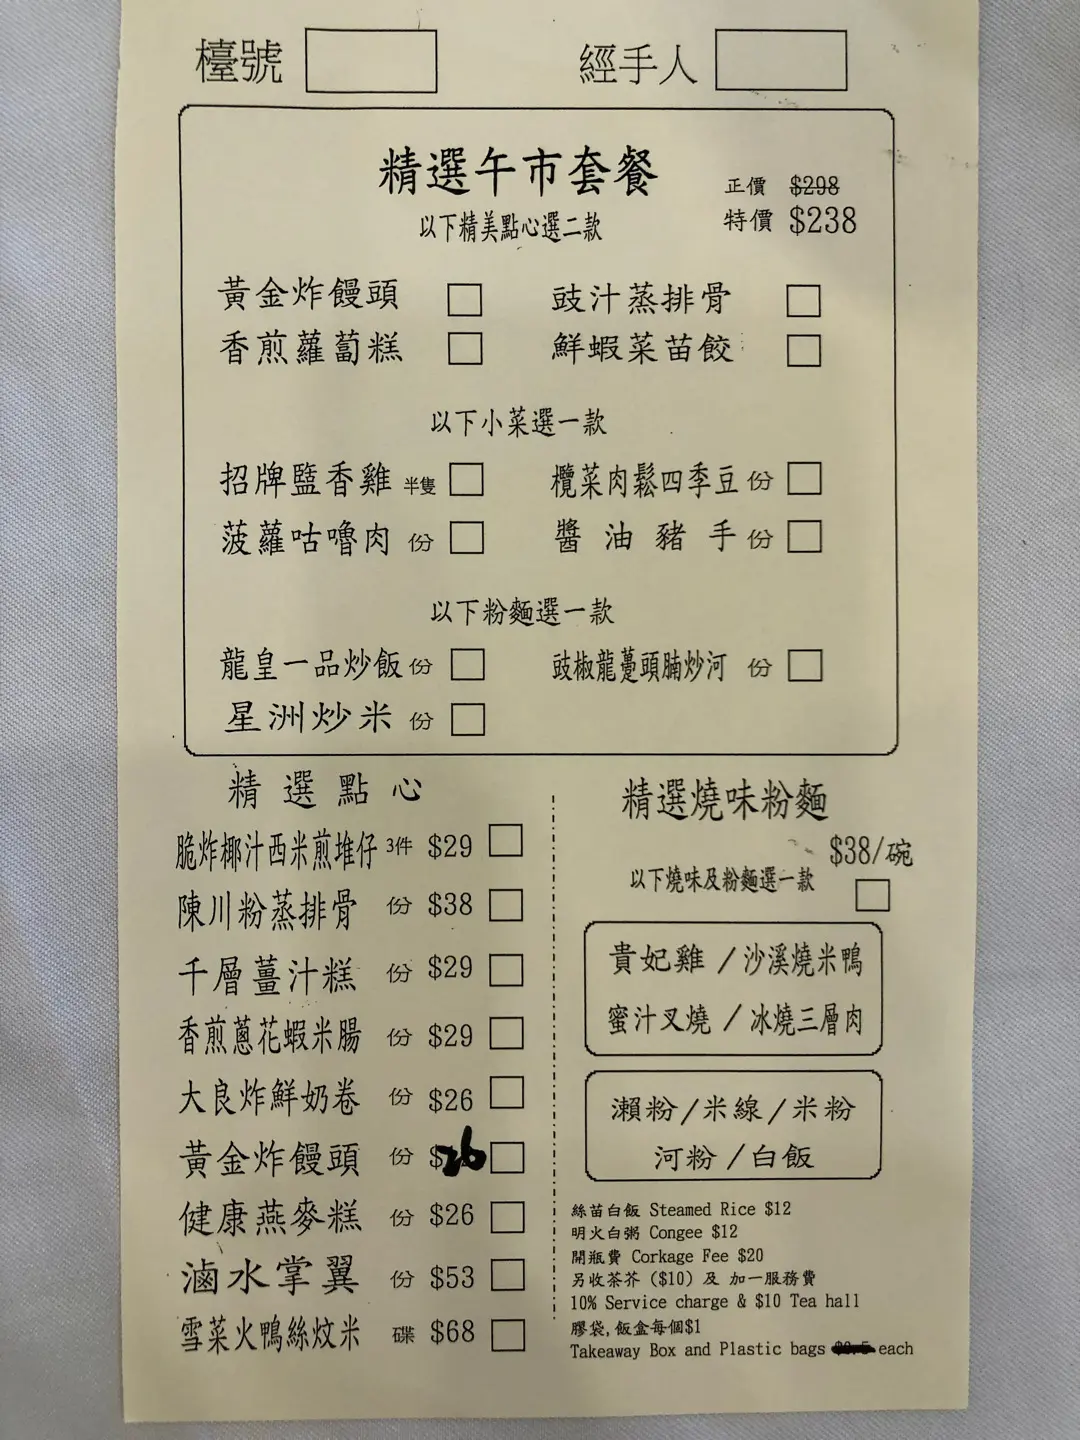 檯號 經手人
精選午市套餐
正價 $298
特價 $238
以下精美點心選二款
黃金炸饅頭 豉汁蒸排骨
香煎蘿蔔糕 鮮蝦菜苗餃
以下小菜選一款
招牌盬香雞 半隻 欖菜肉鬆四季豆 份
菠蘿咕嚕肉 份 醬油豬手 份
以下粉麵選一款
龍皇一品炒飯 份 豉椒龍躉頭腩炒河 份
星洲炒米 份
精選點心
脆炸椰汁西米煎堆仔 3件 $29
陳川粉蒸排骨 份 $38
千層薑汁糕 份 $29
香煎蔥花蝦米腸 份 $29
大良炸鮮奶卷 份 $26
黃金炸饅頭 份 $26
健康燕麥糕 份 $26
滷水掌翼 份 $53
雪菜火鴨絲炆米 碟 $68
精選燒味粉麵
$38/碗
以下燒味及粉麵選一款
貴妃雞 / 沙溪燒米鴨
蜜汁叉燒 / 冰燒三層肉
瀨粉/米線/米粉
河粉/白飯
絲苗白飯 Steamed Rice $12
明火白粥 Congee $12
開瓶費 Corkage Fee $20
另收茶芥 ($10) 及 加一服務費
10% Service charge & $10 Tea hall
膠袋,飯盒每個$1
Takeaway Box and Plastic bags each